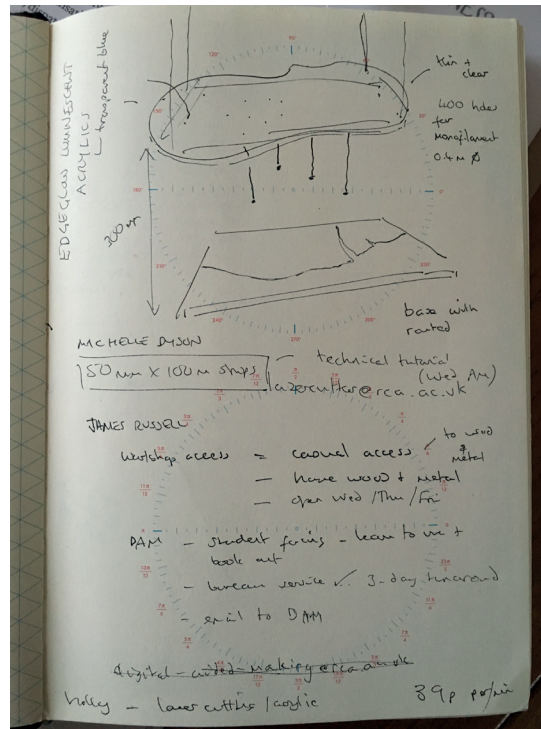 EDGEGLOW LUMINESCENT
ACRYLICS
transparent blue
thin + clear
400 holes
for
monofilament
0.4m Ø
300
base with
routed
MICHELLE DYSON
50mm X 100m strips
technical tutorial
(Wed AM)
lasercutter@rca.ac.uk
JAMES RUSSELL
Workshop access = casual access
to wood
+ metal
— have wood + metal
— open Wed/Thu/Fri
DAM — student facing — learn to use +
book out
— bureau service ✓ 3-day turnaround
— email to DAM
digital-aided-making@rca.ac.uk
holly — laser cutting/acrylic
39p per/min